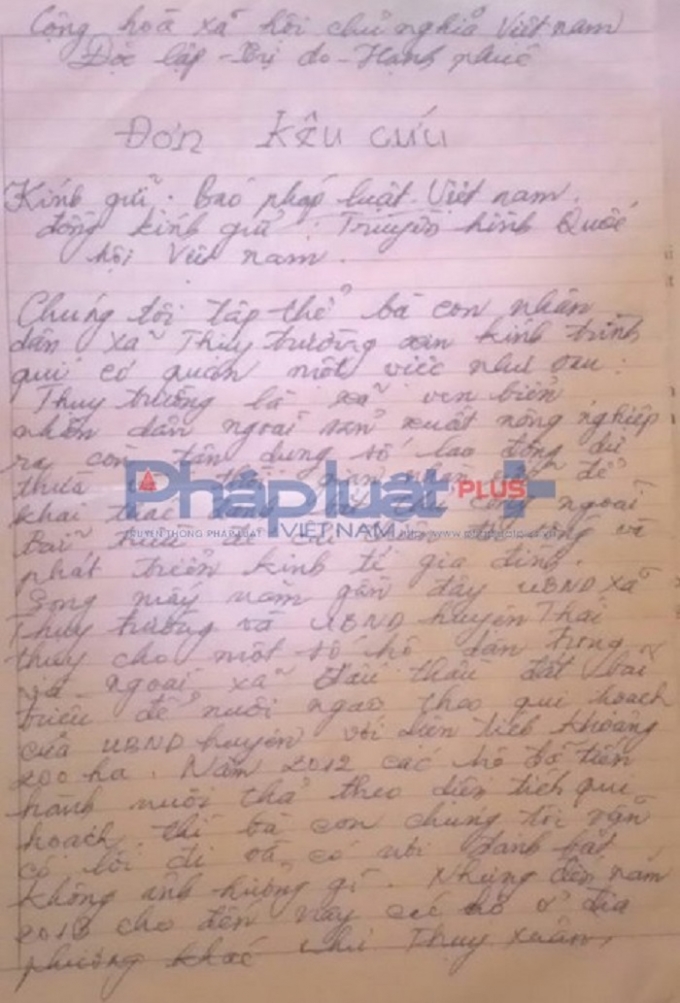 Cộng hoà xã hội chủ nghĩa Việt nam
Độc lập - Tự do - Hạnh phúc
Đơn Kêu cứu
Kính gửi: Báo pháp luật Việt nam.
đồng kính gửi: Truyền hình Quốc
hội Việt nam.
Chúng tôi tập thể bà con nhân
dân xã Thụy trường xin kính trình
quí cơ quan một việc như sau:
Thụy trường là xã ven biển
nhân dân ngoài sản xuất nông nghiệp
ra còn tận dụng số lao động dư
thừa thời gian nhàn để
khai thác ngoài
Bãi triều để đời sống và
phát triển kinh tế gia đình.
Song mấy năm gần đây UBND xã
Thụy trường và UBND huyện Thái
thụy cho một số hộ dân trong và
ngoài xã đấu thầu đất bãi
triều để nuôi ngao theo qui hoạch
của UBND huyện với diện tích khoảng
200 ha. Năm 2012 các hộ đó tiến
hành nuôi thả theo diện tích qui
hoạch, thì bà con chúng tôi vẫn
có lối đi và có nơi đánh bắt
không ảnh hưởng gì. Nhưng đến năm
2013 cho đến nay các hộ ở địa
phương khác như Thụy xuân,
Pháp luật PLUS+
VIỆT NAM
TRUYỀN THÔNG PHÁP LUẬT